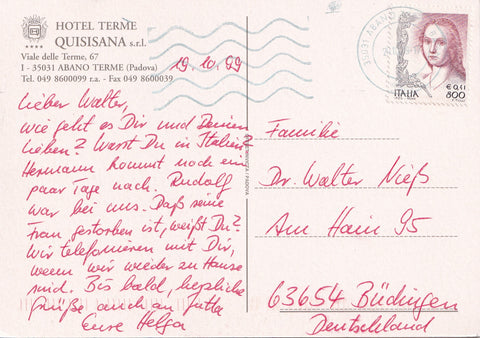 HOTEL TERME
QUISISANA s.r.l.
Viale delle Terme, 67
I - 35031 ABANO TERME (Padova)
Tel. 049 8600099 r.a. - Fax 049 8600039
19.10.99
Lieber Walter,
wie geht es Dir und Deinen
Lieben? Warst Du in Italien?
Hermann kommt noch ein
paar Tage nach. Rudolf
war bei uns. Daß seine
Frau gestorben ist, weißt Du?
Wir telefonieren mit Dir,
wenn wir wieder zu Hause
sind. Bis bald, herzliche
Grüße auch an Jutta
Eure Helga
35031 ABANO
ITALIA
€ 0,41
800
Familie
Dr. Walter Nieß
Am Hain 95
63654 Büdingen
Deutschland